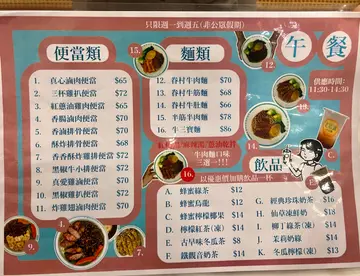 只限週一到週五(非公眾假期)
便當類
1. 真心滷肉便當 $65
2. 三杯雞扒便當 $68
3. 紅蔥油雞肉便當 $65
4. 香腸滷肉便當 $70
5. 香滷排骨便當 $70
6. 酥炸排骨便當 $70
7. 香香酥炸雞排便當 $70
8. 黑椒牛小排便當 $75
9. 真愛雞滷便當 $70
10. 黑椒豬扒便當 $70
11. 炸雞翅滷肉便當 $70
麵類
12. 眷村牛肉麵 $70
13. 眷村牛筋麵 $78
14. 眷村牛肚麵 $68
15. 半筋半肉麵 $78
16. 牛三寶麵 $88
牛肉麵口味
三選一!!!
午餐
供應時間:
11:30-14:30
飲品
以優惠價加購飲品一杯
A. 蜂蜜綠茶 $14
B. 蜂蜜烏龍 $14
C. 蜂蜜檸檬
D. 檸檬紅茶(凍) $14
E. 古早味冬瓜茶 $12
F. 鐵觀音奶茶 $14
G. 經典珍珠奶茶 $16
H. 仙草凍鮮奶 $18
I. 柳丁綠茶(凍) $13
J. 茉莉奶綠 $13
K. 冬瓜檸檬(凍) $13